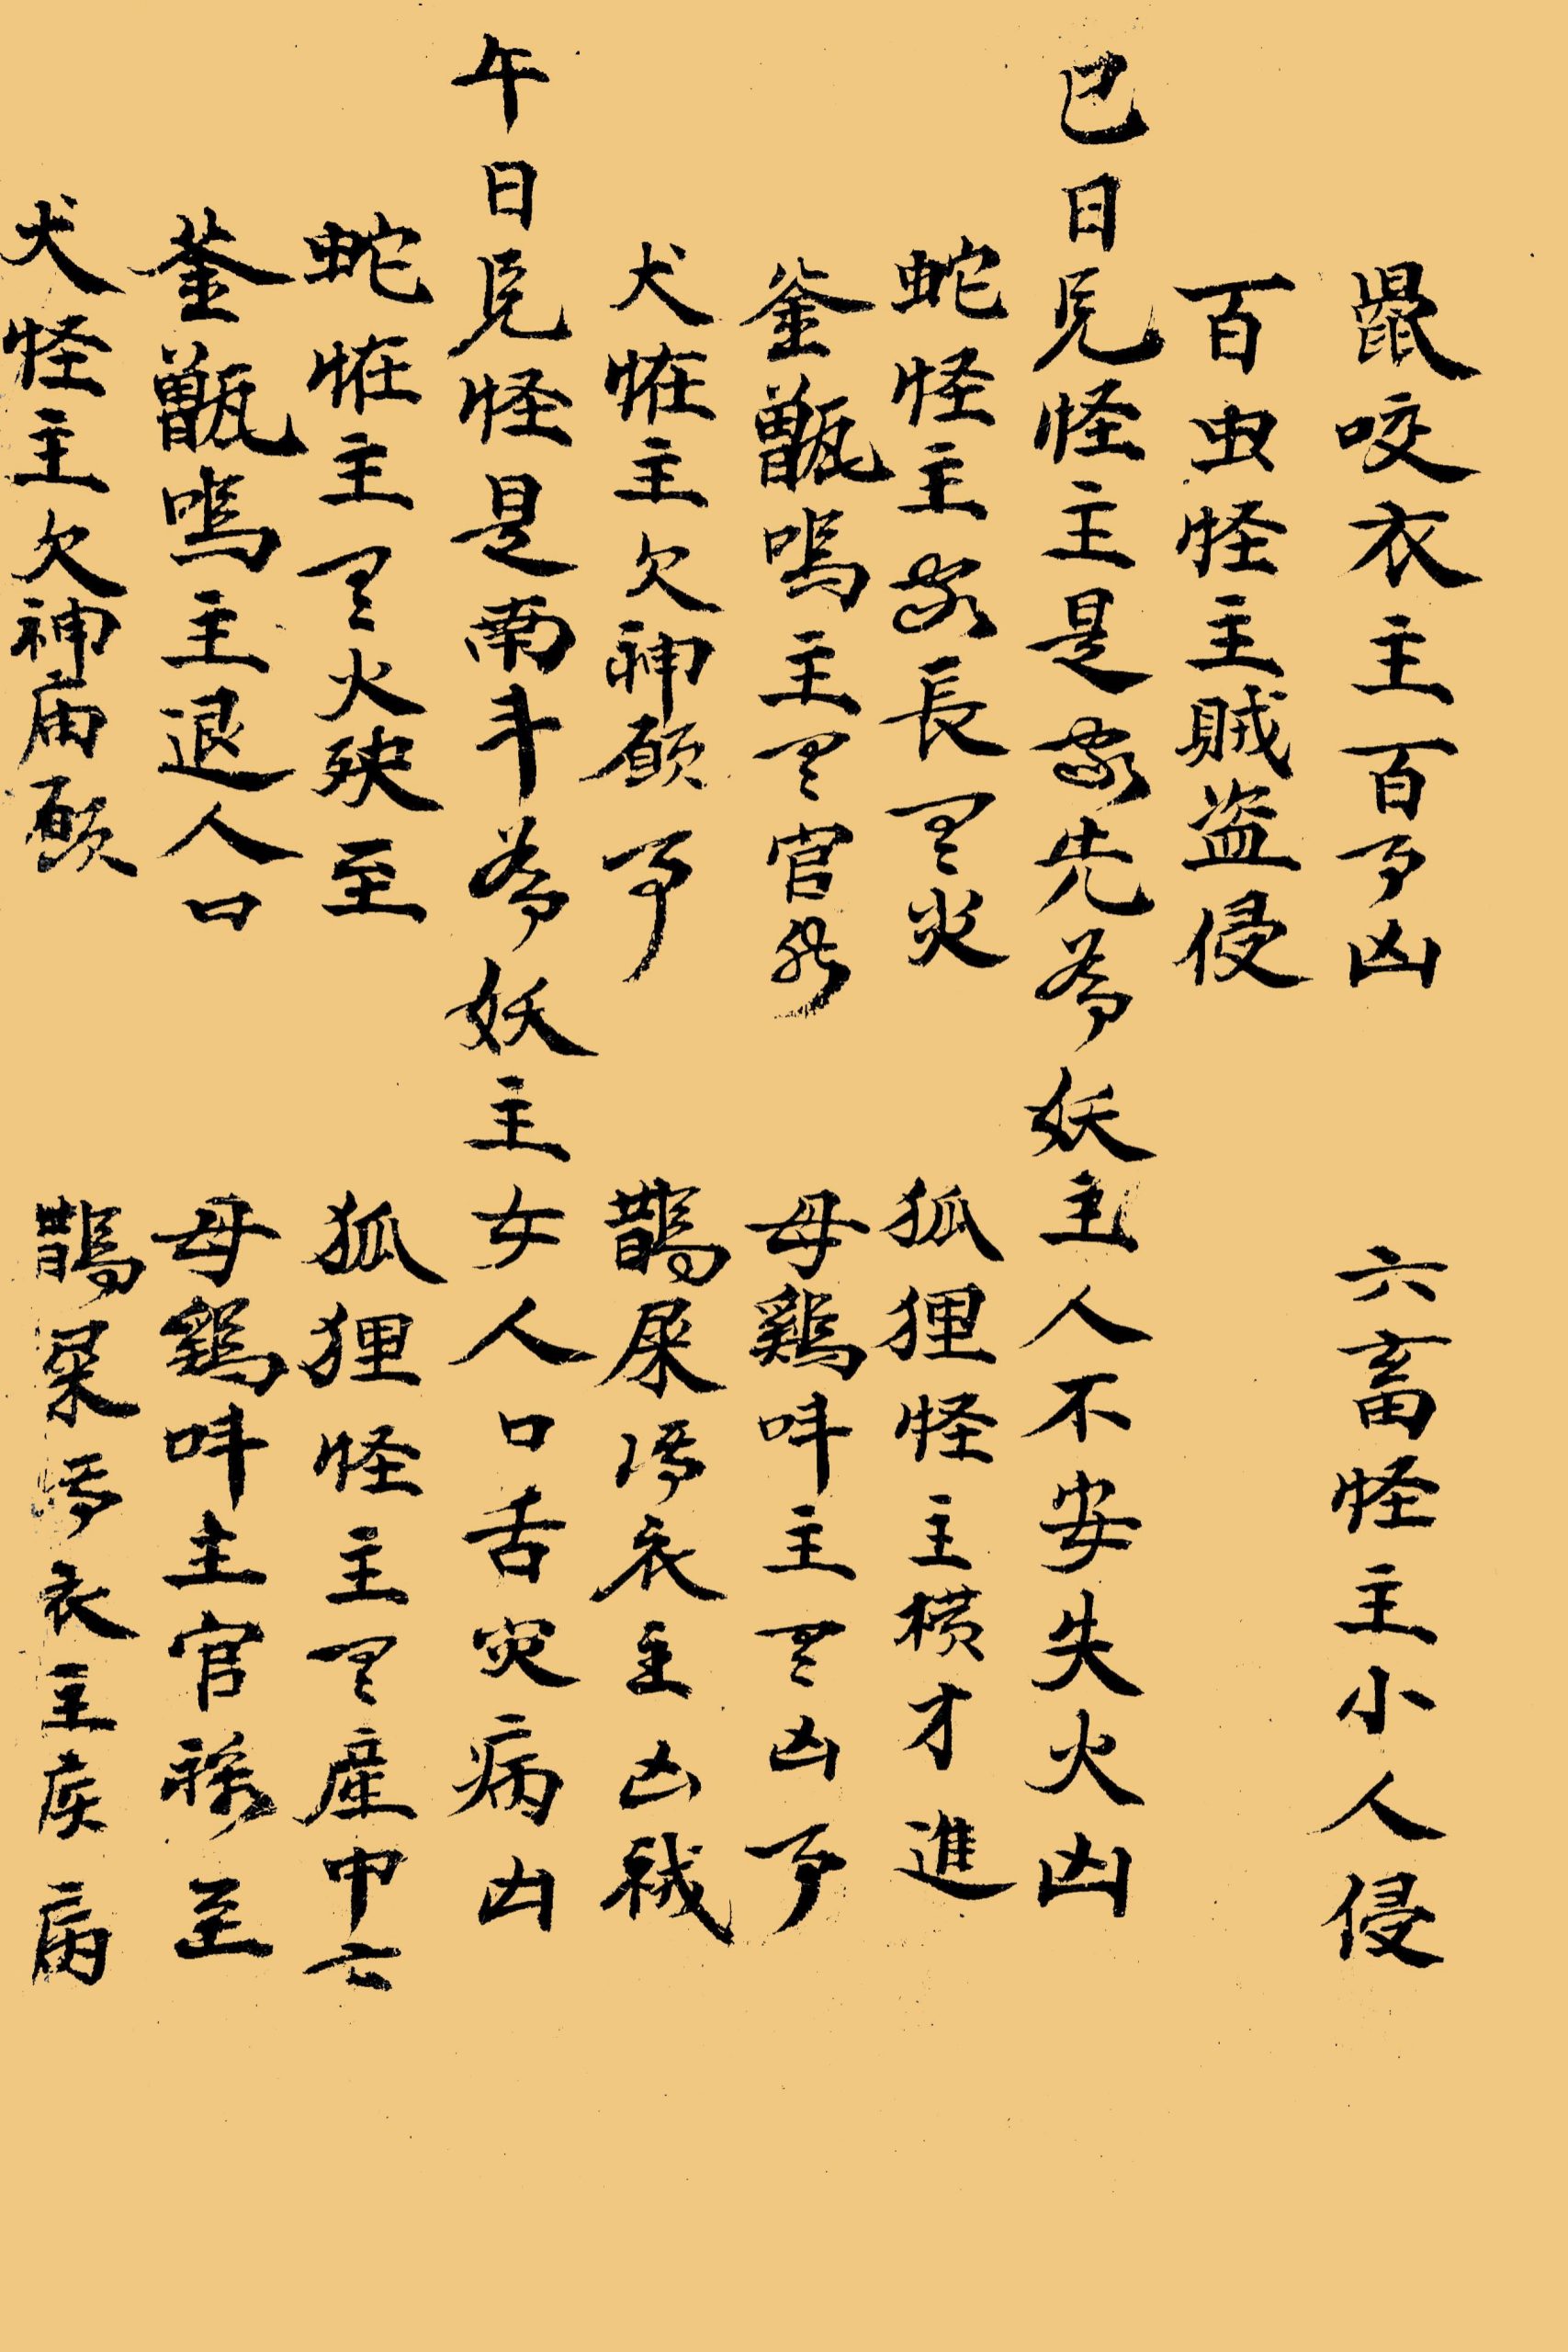 鼠咬衣主百事凶　六畜怪主小人侵
百虫怪主賊盗侵
巳日見怪主是家先爷妖主人不安失火凶
蛇怪主家長見災　狐狸怪主横才進
釜甑鳴主見官　母鷄呌主見凶事
犬恠主欠神願事　鵲屎衣主凶
午日見怪是南斗爷妖主女人口舌灾病凶
蛇恠主見火殃至　狐狸怪主見産中亡
釜甑鳴主退人口　母鷄呌主官至
犬怪主欠神庙願　鵲屎衣主疾病